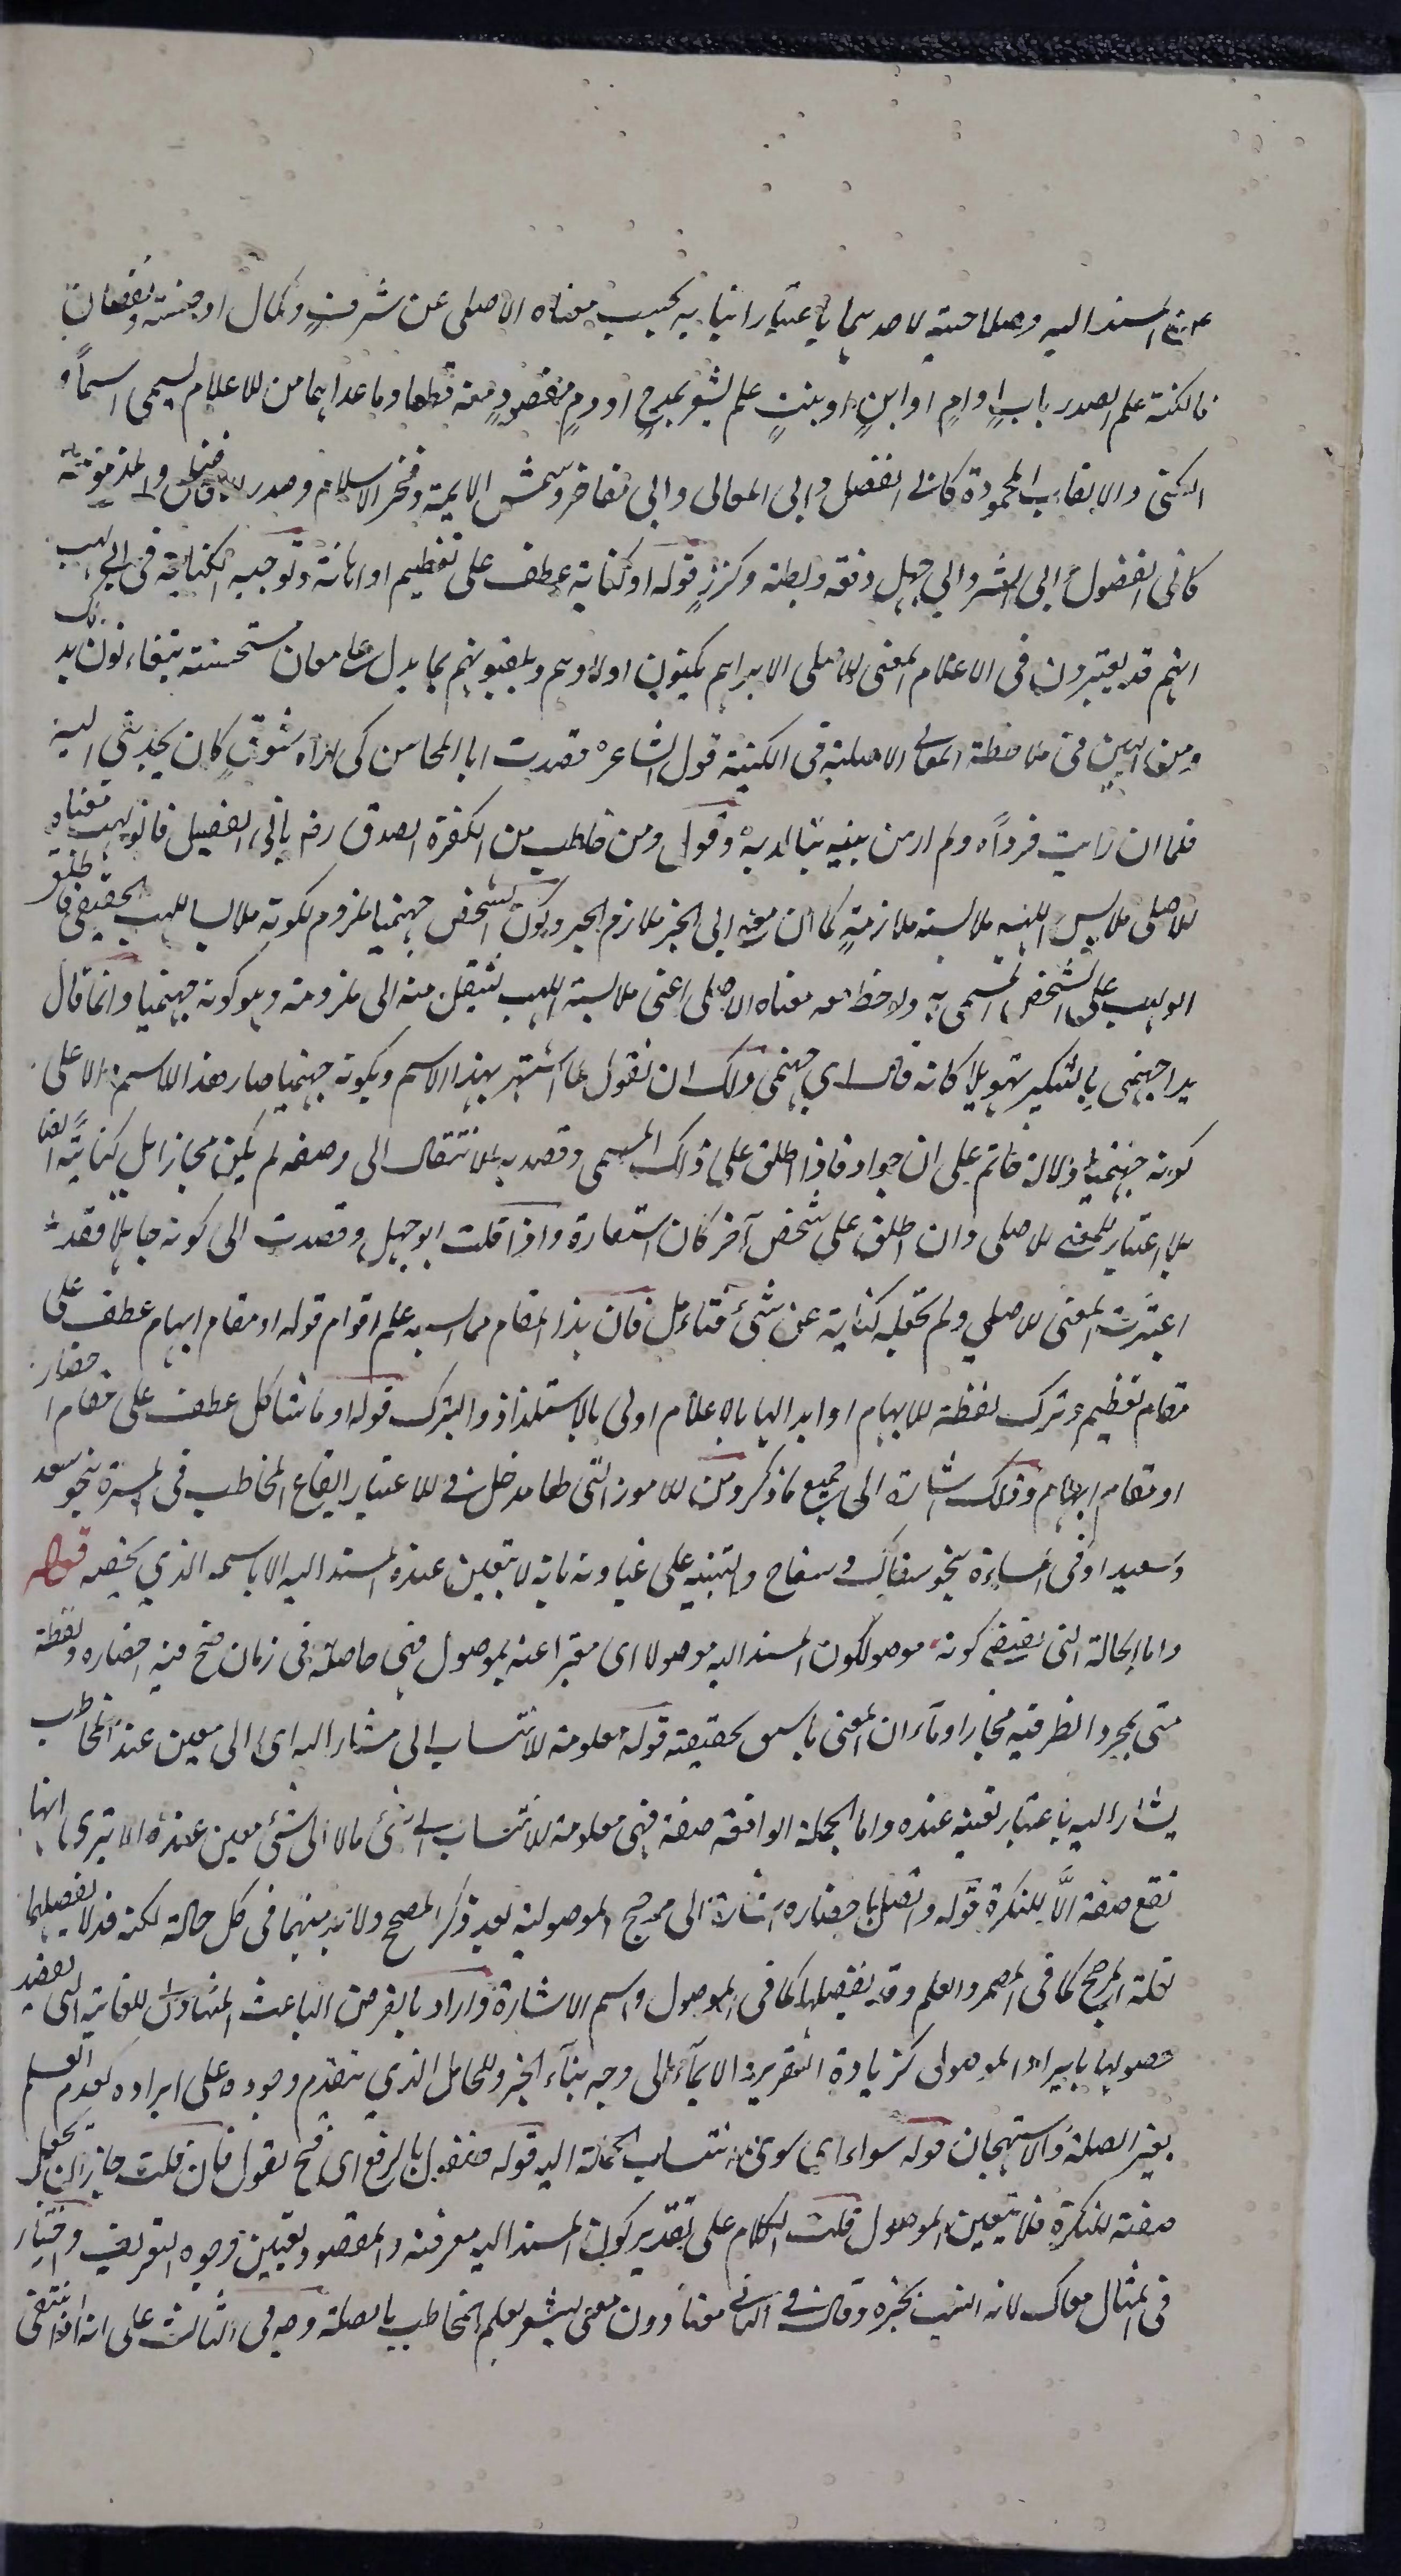 المسند اليه وصلاحيته لاحدهما باعتبار انبائه بحسب معناه الاصلى عن شرف وكمال او خسة ونقصان
فالكنية علم المصدر باب او ام او ابن او بنت علم يشعر بمدح او ذم مقصود منه قطعا وما عداهما من الاعلام يسمى اسما و
الكنى والالقاب المحمودة كابى الفضل وابى المعالى وابى مفاخر وشمس الايمة وفخر الاسلام وصدر الافاضل والمذمومة
كابى الفضول وابى الشر وابي جهل وقفة وبطة وكرز قوله او كناية عطف على تعظيم او اهانة وتوجيه الكناية فى ابى لهب
انهم قد يعتبرون فى الاعلام المعنى الاصلى الا يرى انهم يكنون اولادهم ويلقبونهم بما يدل على معان مستحسنة يتفاءلون بذلك
ومن البين فى ملاحظة المعانى الاصلية فى الكنية قول الشاعر قصدت ابا المحاسن كى اراه لشوق كان يجذبني اليه
فلما ان رايت رايت فردا ولم ار من بنيه ابنا لديه وقول من خاطب من الكفرة الصدق رض بابى الفصيل فابو لهب معناه
الاصلى ملابس اللهب ملابسة ملازمة كما ان معنى ابى الخير ملازم الخير وكون الشخص جهنميا ملزوم لكونه ملابسا للهب الحقيقى فاطلق
ابو لهب على الشخص المسمى به ولاحظ معه معناه الاصلى اعنى ملابسة اللهب لينتقل منه الى ملزومه وهو كونه جهنميا وانما قال
يدا جهنمى بالتنكير تهويلا كانه قال اي جهنمى ولك ان تقول لما اشتهر بهذا الاسم وبكونه جهنميا صار هذا الاسم دالا على
كونه جهنميا دلالة حاتم على انه جواد فاذا اطلق على ذلك المسمى وقصد به الانتقال الى وصفه لم يكن مجازا بل كناية ايضا
بلا اعتبار للمعنى الاصلى وان اطلق على شخص آخر كان استعارة واذا قلت ابو جهل وقصدت الى كونه جاهلا فقد
اعتبرت المعنى الاصلي ولم تجعله كناية عن شئ فتامل فان هذا المقام مما اشتبه على اقوام قوله او مقام ايهام عطف على
مقام تعظيم وترك لفظة الايهام او ابدالها بالاعلام اولى بالاستلذاذ والتبرك قوله او ما شاكل عطف على مقام احضار
او مقام ايهام وذلك اشارة الى جميع ما ذكر ومن الامور التى لها مدخل فى الاعتبار ايقاع المخاطب فى المسرة نحو سعد
وسعيد او فى المساءة نحو سفاك وسفاح والتنبيه على غباوته بانه لا يتعين عنده المسند اليه الا باسمه الذي يخصه قوله
واما الحالة التى تقتضى كونه موصولا كون المسند اليه موصولا اى معبرا عنه بموصول فهى حاصلة فى زمان صح فيه احضاره ولفظة
متى لمجرد الظرفية مجازا وما ان المعنى ما سبق لحقيقته قوله معلومة الانتساب الى مشار اليه اى الى معين عند المخاطب
يشار اليه باعتبار تعينه عنده واما الجملة الواقعة صفة فهى معلومة الانتساب الى شئ ما لا الى شئ معين عنده الا ترى انها
تقع صفة الا للنكرة قوله واتصل باحضاره اشارة الى مرجح الموصولية بعد ذكر المصحح ولا بد منهما فى كل حالة لكنه قد لا يفصلهما
لقلة المرجح كما فى المضمر والعلم وقد يفصلها كما فى الموصول واسم الاشارة واراد بالغرض الباعث المتناول للغاية التى يقصد
حصولها بايراد الموصول كزيادة التقرير والايماء الى وجه بناء الخبر وللحامل الذي يتقدم وجوده على ايراده كعدم العلم
بغير الصلة والاستهجان قوله سواء اي سوى انتساب الجملة اليه قوله فتقول بالرفع اى فح تقول فان قلت جاز ان تجعل
صفة للنكرة فلا يتعين الموصول قلت الكلام على تقدير كون المسند اليه معرفة والمقصود تعيين وجوه التعريف واختار
فى المثال معك لانه انسب بخبره وقال فى الثانى معنا دون معنى ليشعر بعلم المخاطب بالصلة وهى فى الثالث على انه اذا انتفى